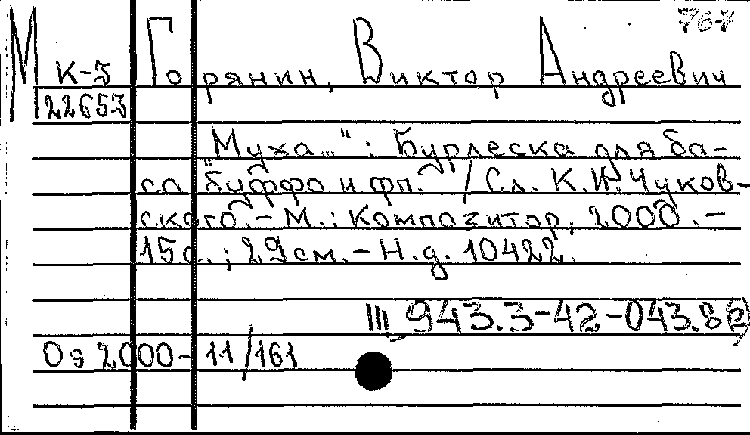 767
М К-5 Горянин, Виктор Андреевич
22653
"Муха...": Бурлеска для ба-
са буффо и фп. / Сл. К.И. Чуков-
ского. - М.: Композитор, 2000. -
15с.; 29см. - Н.д. 10422.
III 943.3-42-043.8②
Оэ 2000-11/161